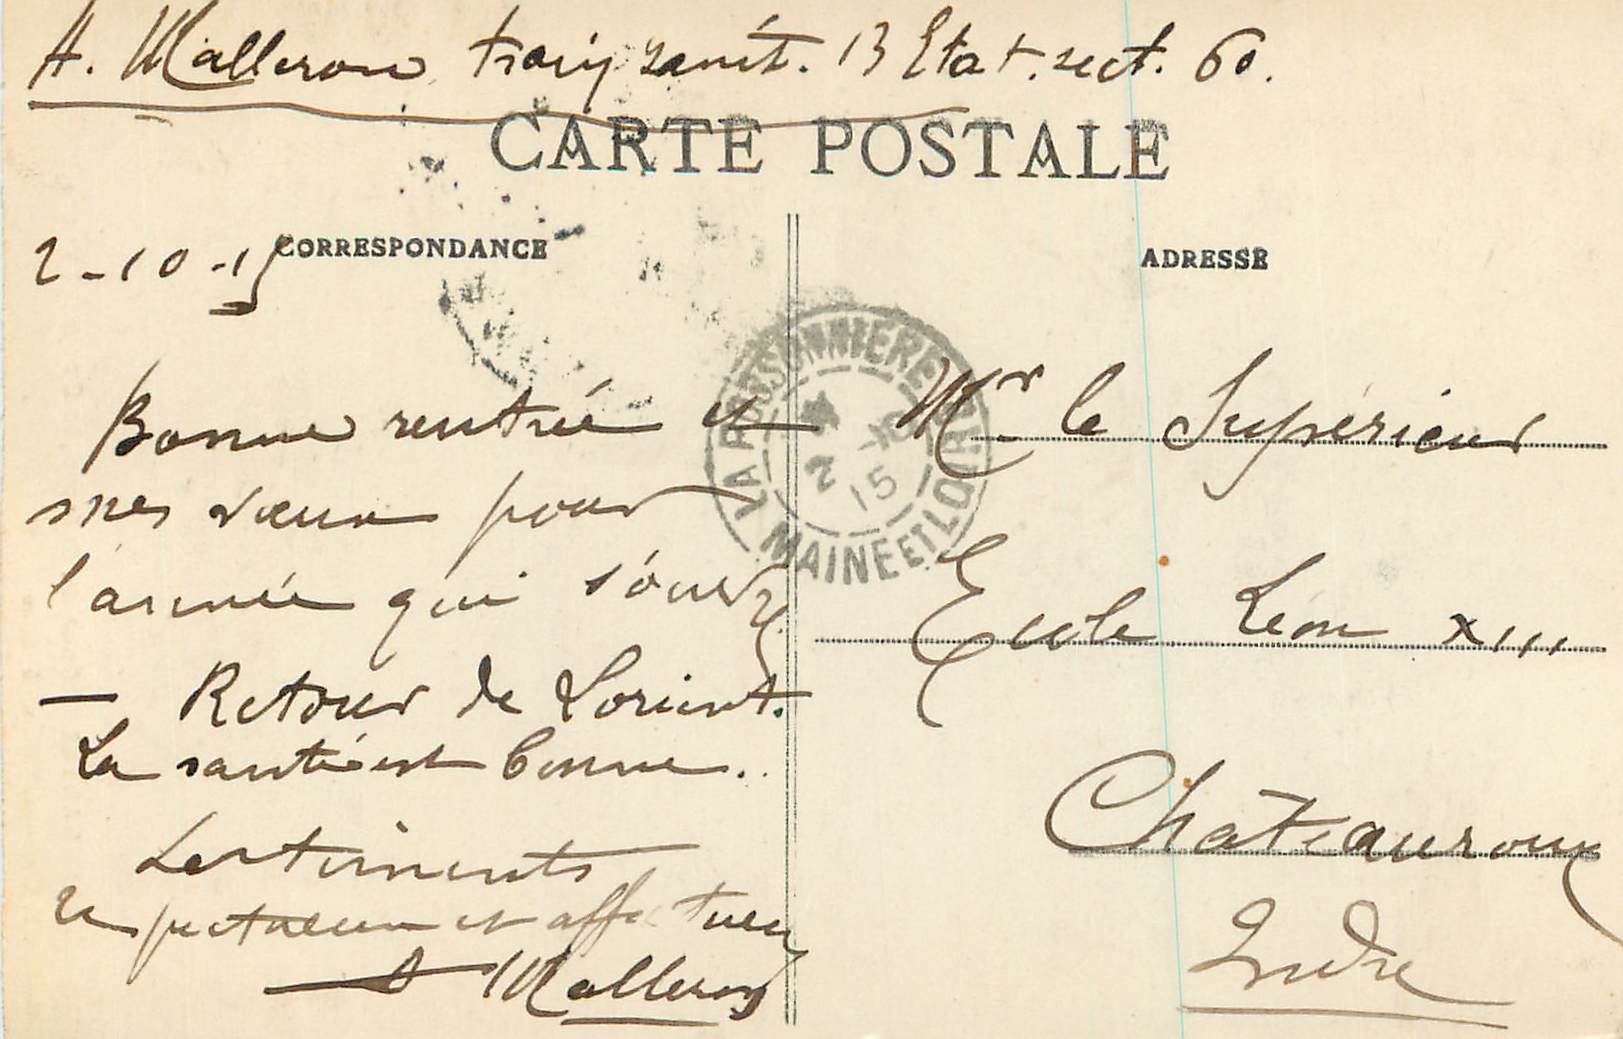 A. Malleron train sanit. 13 Etat. sect. 60.
CARTE POSTALE
CORRESPONDANCE
ADRESSE
2-10-15
LA POSSONNIERE
MAINE ET LOIRE
2 -10
15
Bonne rentrée et
mes vœux pour
l'année qui s'ouvre
— Retour de Lorient.
La santé est bonne..
Sentiments
respectueux et affectueux
A Malleron
Mr. le Supérieur
Ecole Leon XIII
Châteauroux
Indre